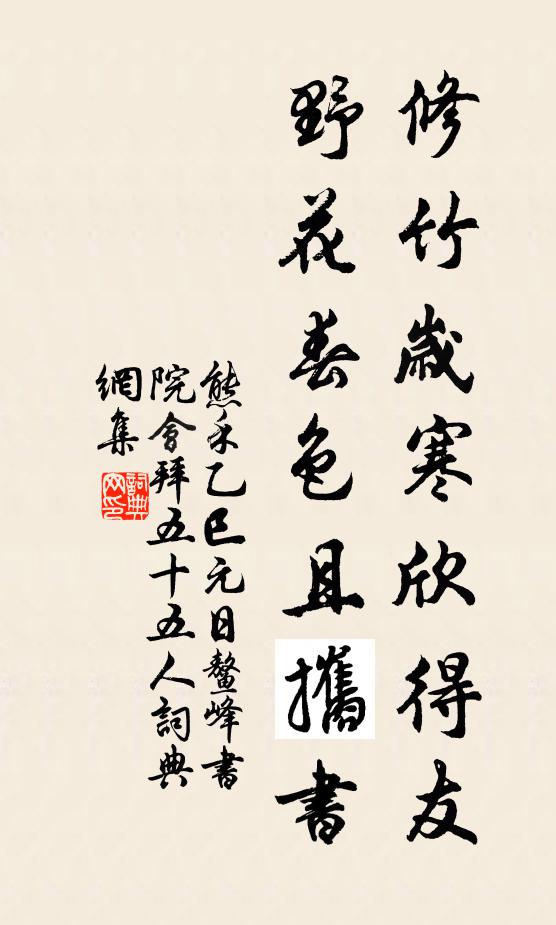 修竹歲寒欣得友
野花春色且攜書
熊禾乙巳元日鰲峰書
院會拜五十五人詞典
網集
詞典網印